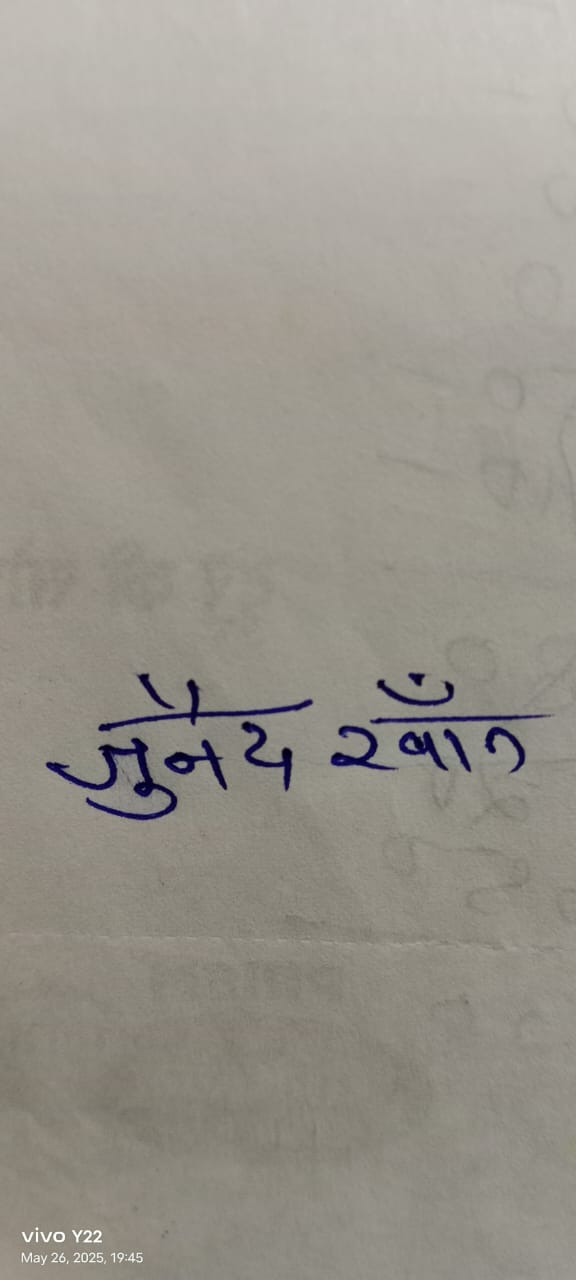 जुनैद खाँन
vivo Y22
May 26, 2025, 19:45